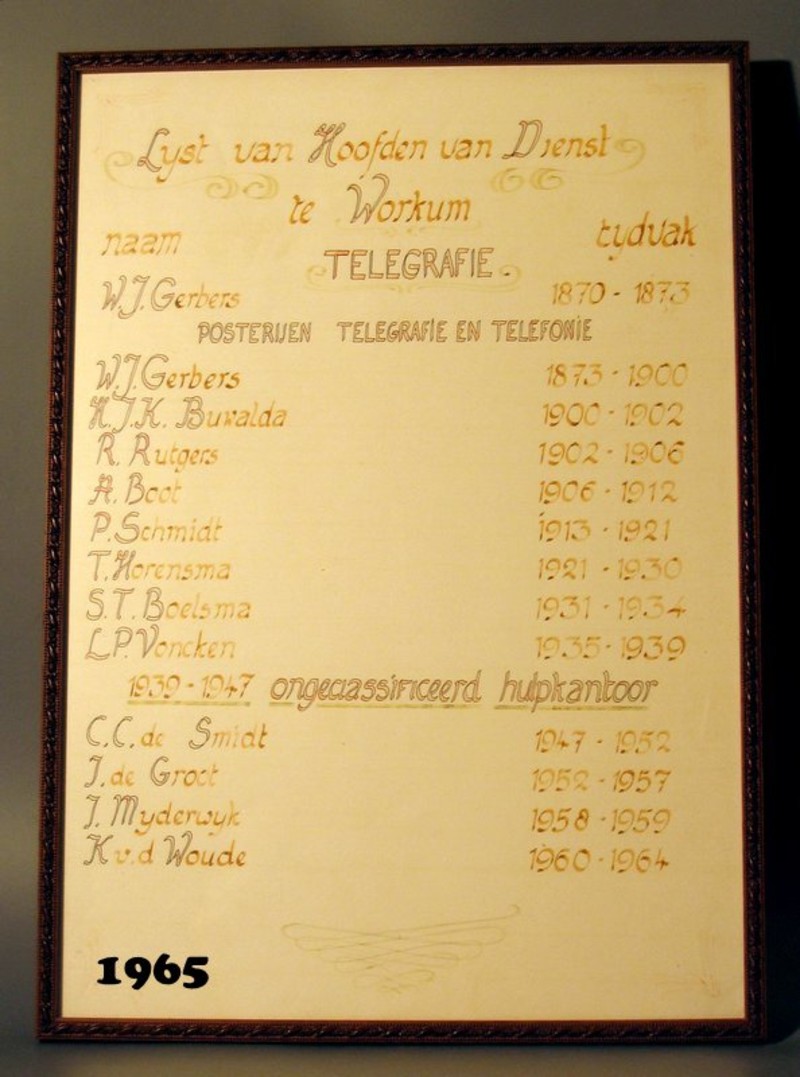 Lyst van Hoofden van Dienst
te Workum
naam tydvak
TELEGRAFIE.
W.J. Gerbers 1870 - 1873
POSTERIJEN TELEGRAFIE EN TELEFONIE
W.J. Gerbers 1873 - 1900
H.J.K. Buwalda 1900 - 1902
R. Rutgers 1902 - 1906
A. Boot 1906 - 1912
P. Schmidt 1913 - 1921
T. Horensma 1921 - 1930
S.T. Boelsma 1931 - 1934
L.P. Voncken 1935 - 1939
1939 - 1947 ongeclassificeerd hulpkantoor
C.C. de Smidt 1947 - 1952
J. de Groot 1952 - 1957
J. Myderwyk 1958 - 1959
K v.d Woude 1960 - 1964
1965